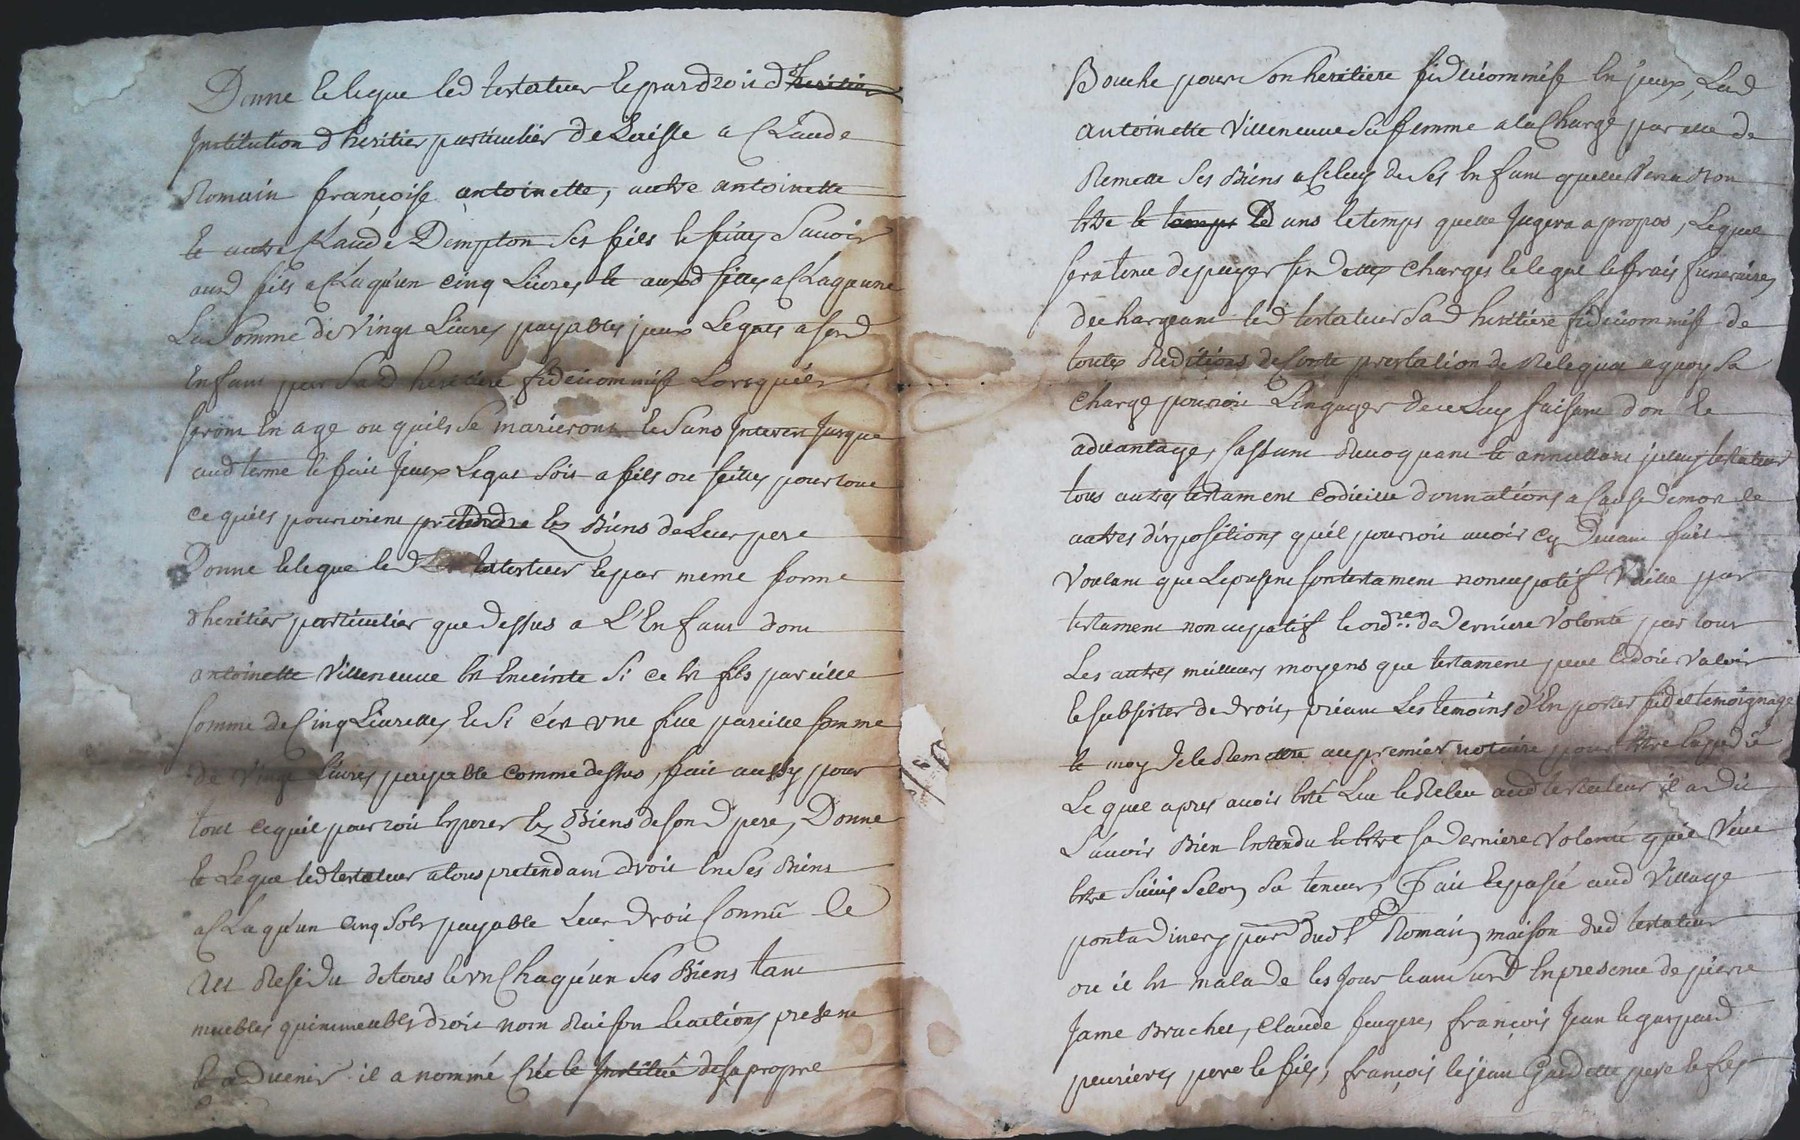 Donne et legue led testateur et par droit d'heritier
Institution d'heritier particulier delaisse a Claude
Romain françoise antoinette, autre antoinette
et autre Claude Dempton ses fils et filles Sauoir
aud fils a Chaqu'un cinq Liures et auxd filles a Chaqune
La Somme de Vingt Liures payables jceux Legats a sesd
Enfant par Sad heritiere fideicommise Lorsquils
seront En age ou quils Se marieront et Sans Interest Jusque
aud terme et fait jceux Legat Soit a fils ou filles pour tout
ce quils pourroient pretendre ez Biens de Leur pere
Donne et legue led testateur et par meme forme
d'heritier particulier que dessus a L'Enfant dont
antoinette Villeneuue Est Enceinte Si ce Est fils pareille
somme de Cinq Liures et Si c'est vne fille pareille somme
de Vingt Liures payable comme dessus, fait aussy pour
tout ce quil pourroit Esperer ez Biens de son d pere, Donne
et Legue led testateur a tous pretendant droit En Ses Biens
a Chaqu'un cinq Sols payable Leur droit Connû et
Au Residu de tous et vn Chaqu'un Ses Biens tant
meubles qu'immeubles droit nom Raison et actions present
et aduenir il a nommé Créé et Institué de sa propre
Bouche pour Son heritiere fideicommise En jceux, Lad
antoinette Villeneuue Sa femme a la Charge par elle de
Remettre Ses Biens a Celuy de Ses Enfant quelle Verra Bon
Estre et temps Dans le temps quelle Jugera a propos, Lequel
sera tenu de payer sesd dettes charges et legat et frais funeraires
dechargeant led testateur Sad heritiere fideicommise de
toutes Redditions de Conte prestation de Reliqua a quoy Sa
charge pourroit L'engager de ce Luy faisant don et
aduantage, Cassant Reuoquant et annullant jceluy testateur
tous autres testament codicille donnations a Cause de mort et
autres dispositions quil pourroit auoir cy Deuant fait
Voulant que Le present son testament noncupatif Vaille par
testament noncupatif et ord.re de Derniere Volonté, par tous
Les autres meilleurs moyens que testament peut et doit Valoir
et subsister de droit, priant Les temoins d'En porter fidel temoignage
et moy de le Remettre au premier notaire pour Estre Expedié
Lequel apres auoir Esté Lu et Relu aud testateur il a dit
L'auoir Bien Entendu et Estre sa derniere Volonté qu'il Veut
Estre Suiuis Selon Sa teneur, Fait et passé aud Village
parroisse dud St Romain maison dud testateur
ou il Est malade les Jour et an Susd En presence de pierre
Jame Brachet, Claude feugere, françois Jean et gaspard
peurieres pere et fils, françois et jean Gardette pere et fils